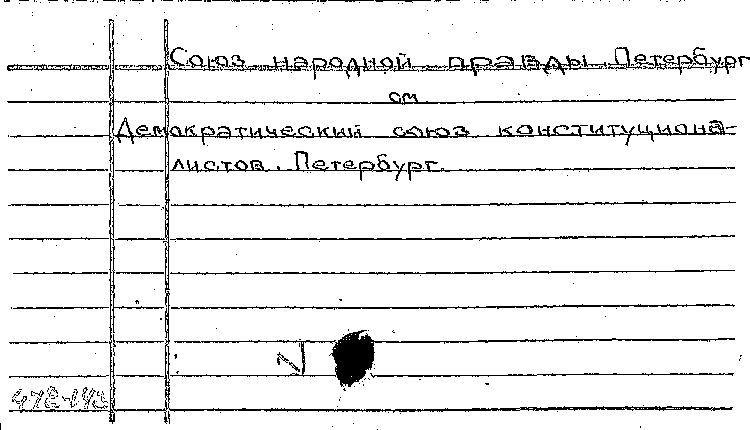 Союз народной правды. Петербург
см
Демократический союз конституциона-
листов. Петербург.